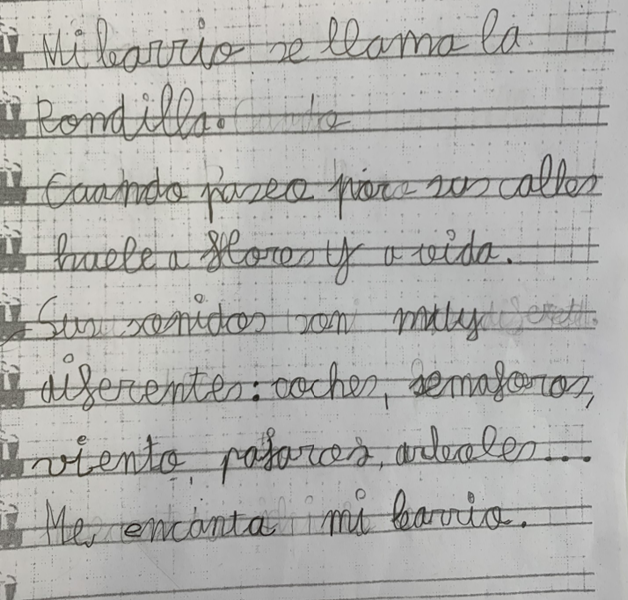 Mi barrio se llama la
Rondilla.
Cuando paseo por sus calles
huele a flores y a vida.
Sus sonidos son muy
diferentes: coches, semaforos,
viento, pajaros, arboles...
Me encanta mi barrio.